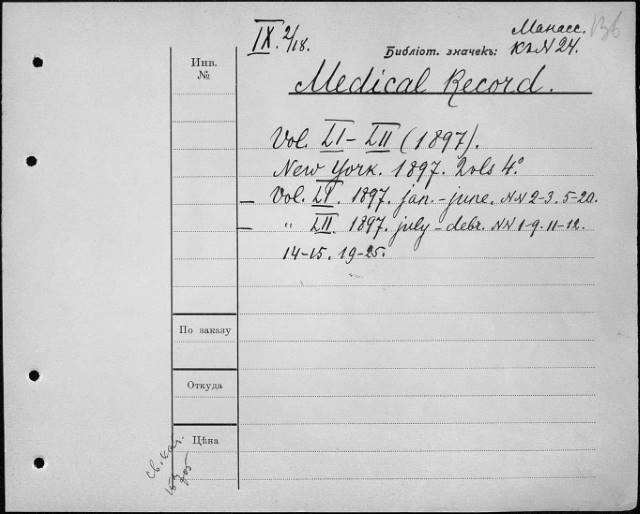 IX. 2/18.
Манасс.
Библіот. значекъ: КъN24.
Инв.
№
Medical Record.
Vol. LI-LII (1897).
New York. 1897. 2 vols 4º
— Vol. LI. 1897. jan.-june. NN 2-3. 5-20.
— " LII. 1897. july-debr. NN 1-9. 11-12.
14-15. 19-25.
По заказу
Откуда
Цѣна
св. кат.